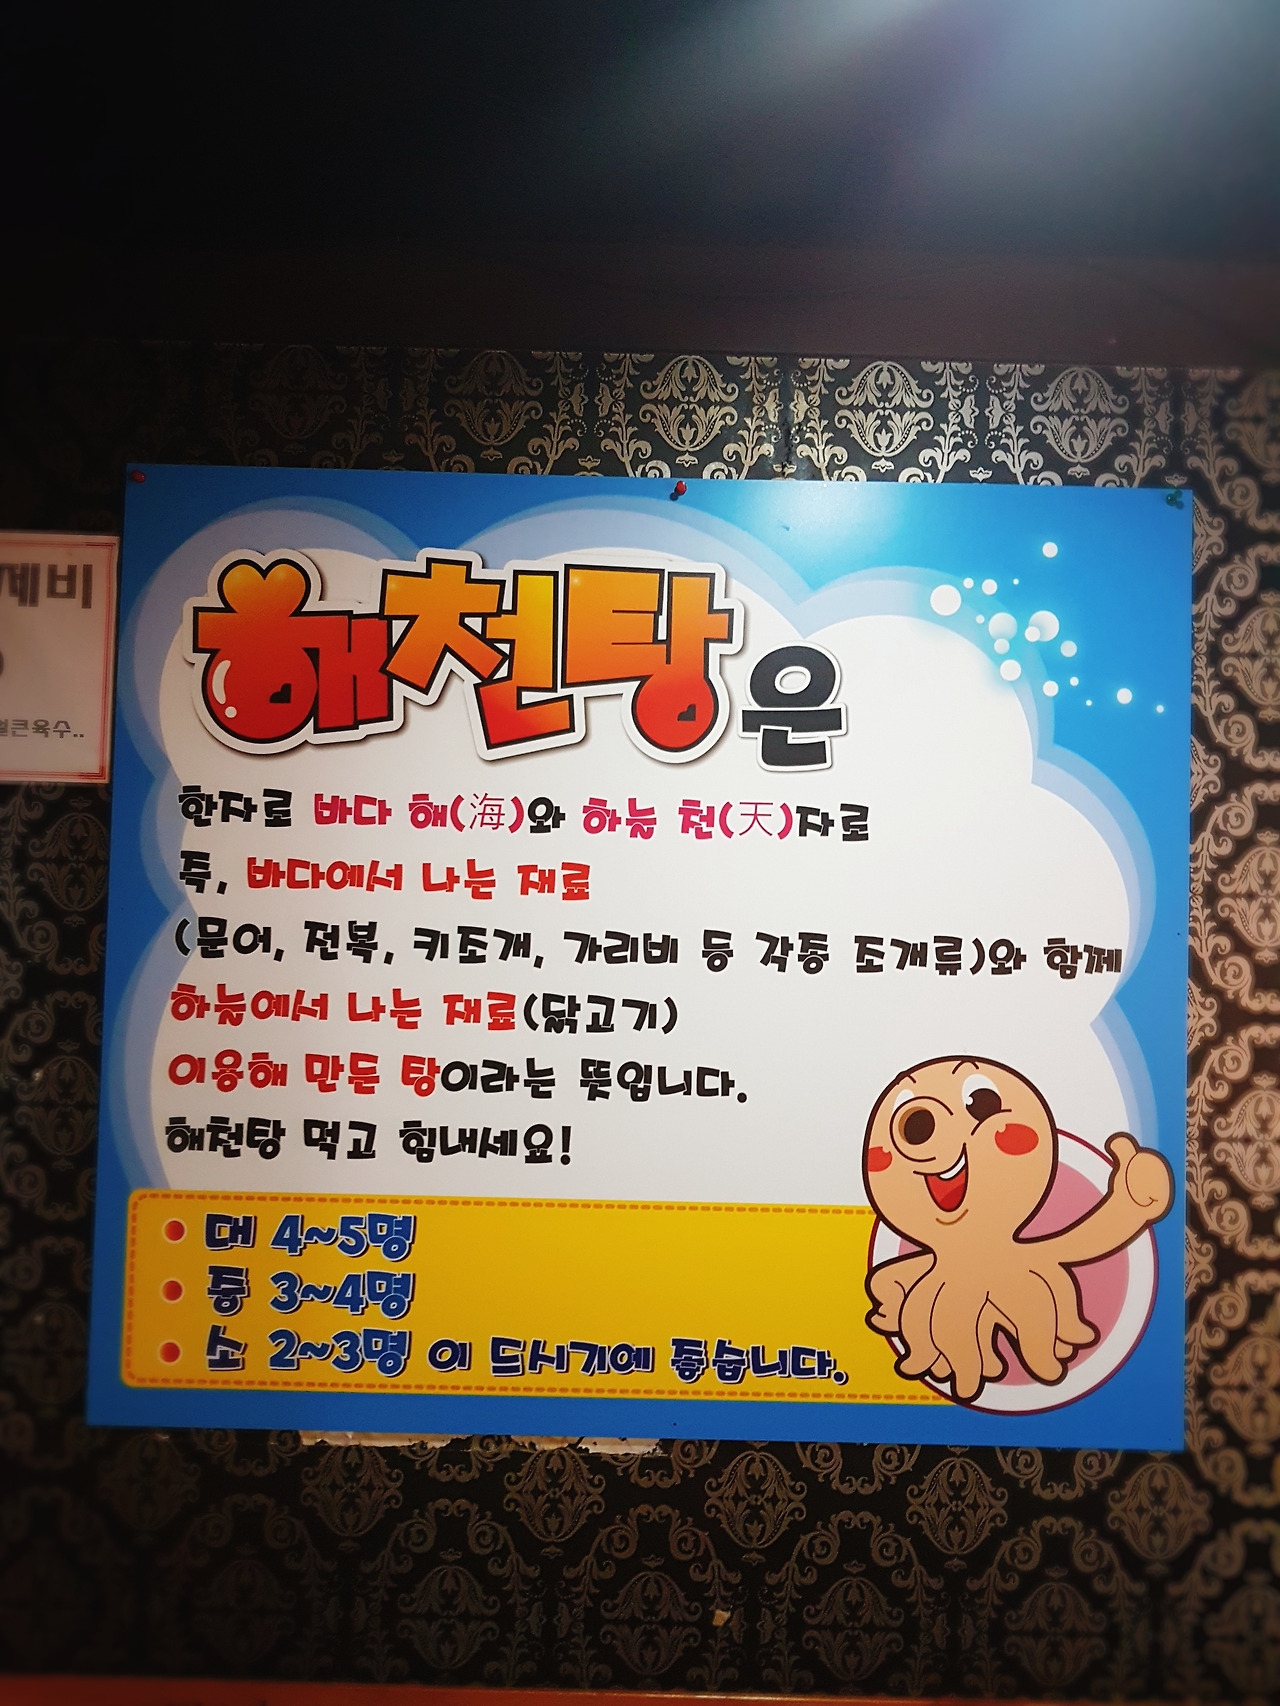 제비
큰육수..
해천탕은
한자로 바다 해(海)와 하늘 천(天)자로
즉, 바다에서 나는 재료
(문어, 전복, 키조개, 가리비 등 각종 조개류)와 함께
하늘에서 나는 재료(닭고기)
이용해 만든 탕이라는 뜻입니다.
해천탕 먹고 힘내세요!
대 4~5명
중 3~4명
소 2~3명 이 드시기에 좋습니다.